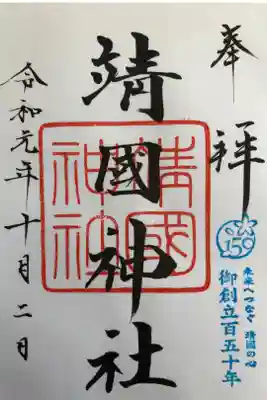 奉拝
靖國神社
靖國
神社
150
未来へつなぐ 靖國の心
御創立百五十年
令和元年十月二日